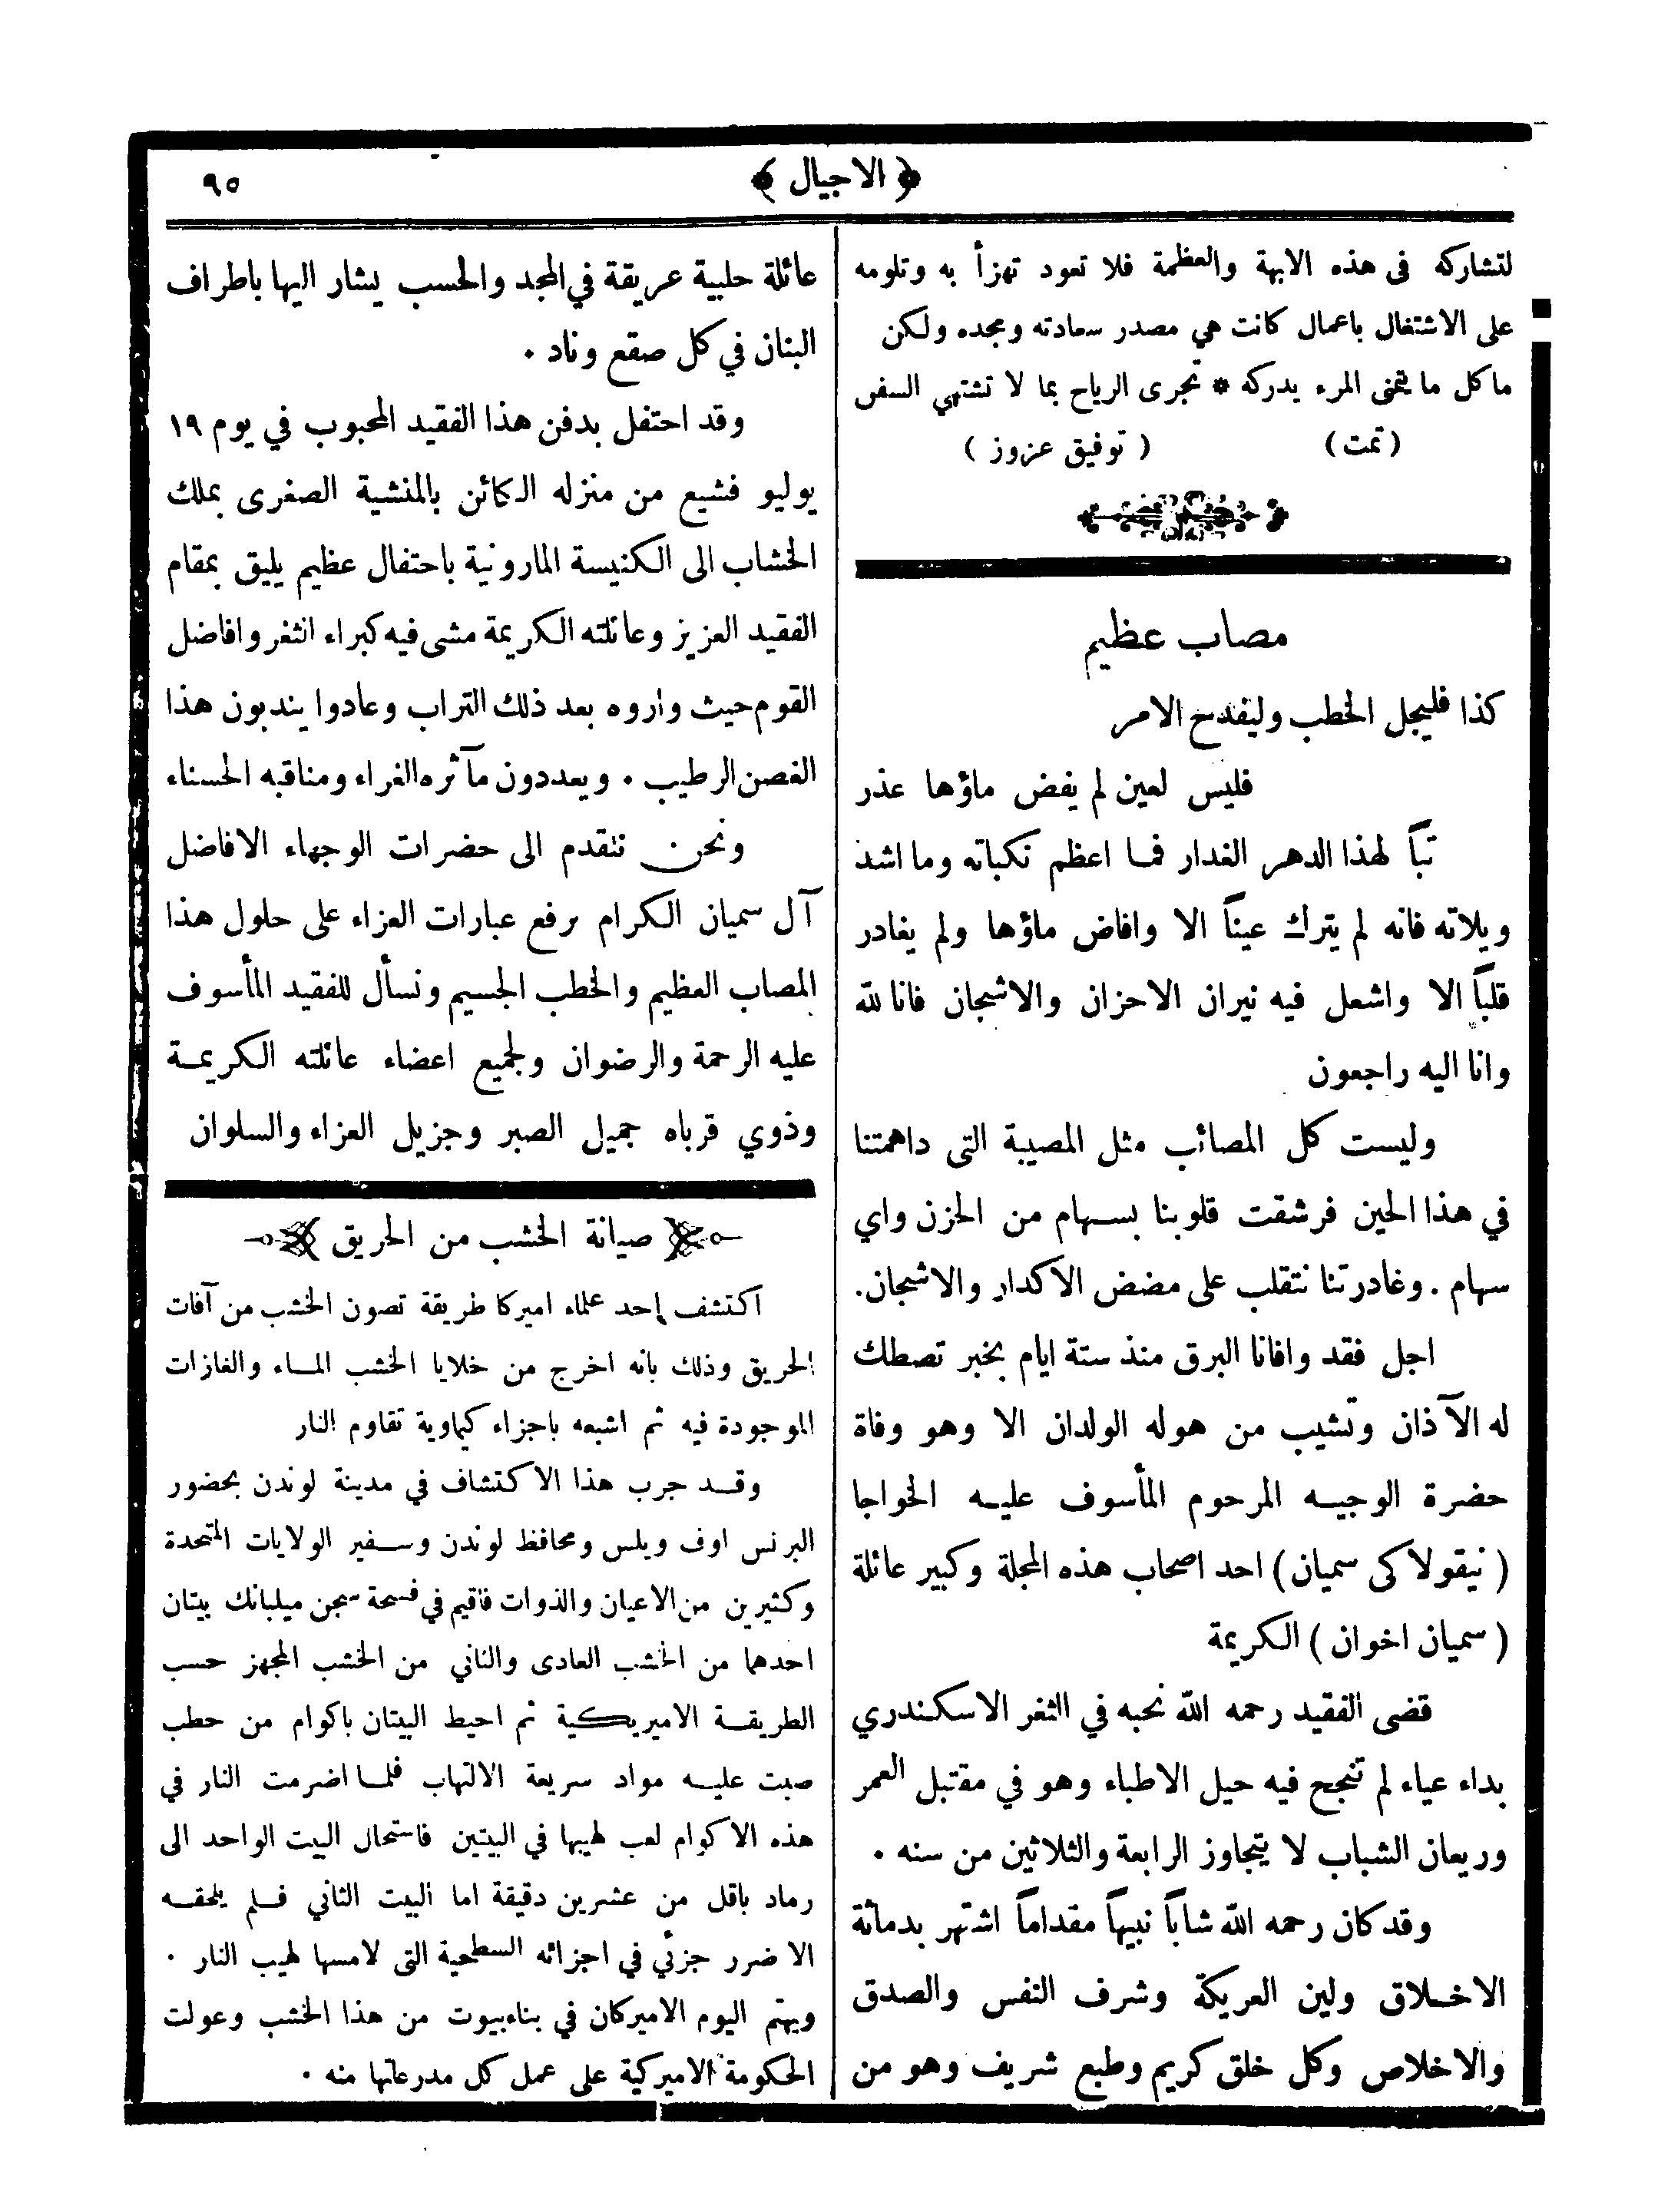 ﴿ الاجيال ﴾
٩٥
لتشاركه فى هذه الابهة والعظمة فلا تعود تهزأ به وتلومه
على الاشتغال باعمال كانت هي مصدر سعادته ومجده ولكن
ما كل ما يتمنى المرء يدركه * تجرى الرياح بما لا تشتهي السفن
( تمت ) ( توفيق عزوز )
مصاب عظيم
كذا فليجل الخطب وليفدح الامر
فليس لعين لم يفض ماؤها عذر
تباً لهذا الدهر الغدار فما اعظم نكباته وما اشد
ويلاته فانه لم يترك عيناً الا وافاض ماؤها ولم يغادر
قلباً الا واشعل فيه نيران الاحزان والاشجان فانا لله
وانا اليه راجعون
وليست كل المصائب مثل المصيبة التى داهمتنا
في هذا الحين فرشقت قلوبنا بسهام من الحزن واي
سهام . وغادرتنا نتقلب على مضض الاكدار والاشجان.
اجل فقد وافانا البرق منذ ستة ايام بخبر تصطك
له الآذان وتشيب من هوله الولدان الا وهو وفاة
حضرة الوجيه المرحوم المأسوف عليه الخواجا
( نيقولاكى سميان ) احد اصحاب هذه المجلة وكبير عائلة
( سميان اخوان ) الكريمة
قضى الفقيد رحمه الله نحبه في الثغر الاسكندري
بداء عياء لم تنجح فيه حيل الاطباء وهو في مقتبل العمر
وريعان الشباب لا يتجاوز الرابعة والثلاثين من سنه .
وقد كان رحمه الله شاباً نبيهاً مقداماً اشتهر بدماثة
الاخلاق ولين العريكة وشرف النفس والصدق
والاخلاص وكل خلق كريم وطبع شريف وهو من
عائلة حلبية عريقة في المجد والحسب يشار اليها باطراف
البنان في كل صقع وناد .
وقد احتفل بدفن هذا الفقيد المحبوب في يوم ١٩
يوليو فشيع من منزله الكائن بالمنشية الصغرى بملك
الخشاب الى الكنيسة المارونية باحتفال عظيم يليق بمقام
الفقيد العزيز وعائلته الكريمة مشى فيه كبراء الثغر وافاضل
القوم حيث واروه بعد ذلك التراب وعادوا يندبون هذا
الغصن الرطيب . ويعددون مآثره الغراء ومناقبه الحسناء
ونحن نتقدم الى حضرات الوجهاء الافاضل
آل سميان الكرام برفع عبارات العزاء على حلول هذا
المصاب العظيم والخطب الجسيم ونسأل للفقيد المأسوف
عليه الرحمة والرضوان ولجميع اعضاء عائلته الكريمة
وذوي قرباه جميل الصبر وجزيل العزاء والسلوان
صيانة الخشب من الحريق
اكتشف احد علماء اميركا طريقة تصون الخشب من آفات
الحريق وذلك بانه اخرج من خلايا الخشب الماء والغازات
الموجودة فيه ثم اشبعه باجزاء كيماوية تقاوم النار
وقد جرب هذا الاكتشاف في مدينة لوندن بحضور
البرنس اوف ويلس ومحافظ لوندن وسفير الولايات المتحدة
وكثيرين من الاعيان والذوات فاقيم في فسحة سجن ميلبانك بيتان
احدهما من الخشب العادى والثاني من الخشب المجهز حسب
الطريقة الاميريكية ثم احيط البيتان باكوام من حطب
صبت عليه مواد سريعة الالتهاب فلما اضرمت النار في
هذه الاكوام لعب لهيبها في البيتين فاستحال البيت الواحد الى
رماد باقل من عشرين دقيقة اما البيت الثاني فلم يلحقه
الا ضرر جزئي في اجزائه السطحية التى لامسها لهيب النار .
ويهتم اليوم الاميركان في بناء بيوت من هذا الخشب وعولت
الحكومة الاميركية على عمل كل مدرعاتها منه .